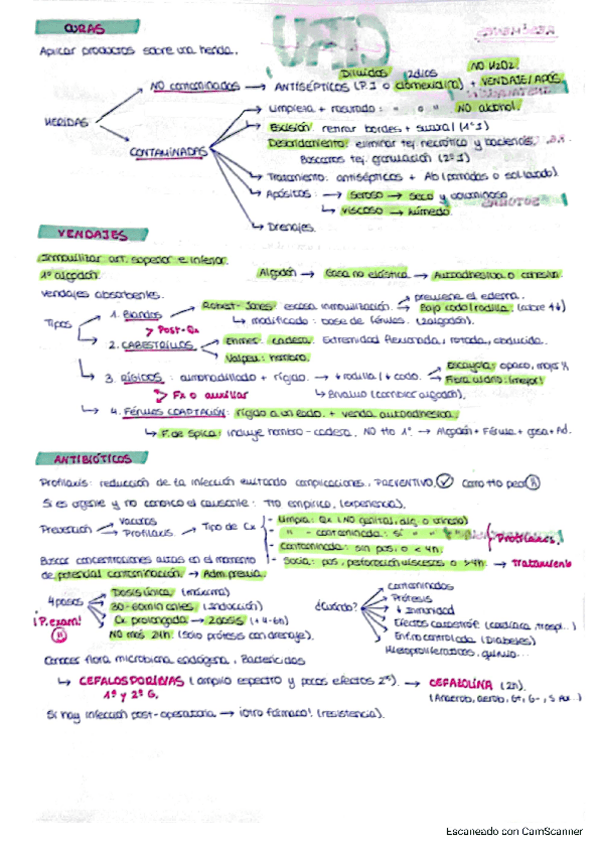 CURAS
Aplicar productos sobre una herida.
NO H2O2
Diluidos 2dios
NO contaminadas → ANTISÉPTICOS (P.I o clorhexidina) + VENDAJE/APÓS.
HERIDAS
CONTAMINADAS
Limpieza + rasurado: " o " NO alcohol.
Escisión: reavivar bordes + sutura (1ªI)
Desbridamiento: eliminar tej. necrótico y bacterias.
Buscamos tej. granulación (2ªI)
Tratamiento: antisépticos + Ab (pomadas o sol. lavado).
Apósitos: → Seroso → seco y voluminoso
↳ Viscoso → húmedo.
Drenajes.
VENDAJES
Inmovilizar art. superior e inferior.
1º algodón. Algodón → Gasa no elástica → Autoadhesiva o cohesiva.
Vendajes absorbentes.
Tipos
1. Blandos → Robert-Jones: escasa inmovilización. previene el edema.
Bajo codo/rodilla: (abre 4d)
↳ modificado: base de férulas. (2algodón).
Post-Qx
2. CABESTRILLOS Ehmer: cadera. Extremidad flexionada, rotada, abducida.
Velpeau: hombro.
3. RÍGIDOS: almohadillado + rígido. → ↓ rodilla / ↓ codo. Escayola: opaco, moja X
Fibra vidrio: (mejor)
Fx o auxiliar → Bivalvo (cambiar algodón).
4. FÉRULAS COAPTACIÓN: rígido a un lado. + venda autoadhesiva.
↳ F. de Spica: incluye hombro-cadera. NO tto 1º. → Algodón + Férula + gasa + Ad.
ANTIBIÓTICOS
Profilaxis: reducción de la infección evitando complicaciones. PREVENTIVO. ✓ como tto peor
Si es urgente y no conozco el causante: tto empírico. (experiencia).
Prevención Vacunas
Profilaxis → Tipo de Cx
- Limpia: Qx (NO genital, dig. o urinario)
- " - contaminada: sí " " "
- Contaminada: sin pus, o < 4h.
- Sucia: pus, perforación vísceras o > 4h. → Tratamiento
Profilaxis.
Buscar concentraciones altas en el momento
de potencial contaminación. → Adm previa.
4 pasos
¡P. exam!
Dosis única (máxima)
30-60min antes (inducción)
Cx prolongada → 2dosis (+ 4-6h)
NO más 24h (Solo prótesis con drenaje).
¿Cuándo?
Contaminadas
Prótesis
↓ inmunidad
Efectos catastróf. (cardiaca, traspl...)
Enfm controlada (Diabetes)
Mieloproliferativas, quimio...
Conocer flora microbiana endógena. Bactericidas
↳ CEFALOSPORINAS (amplio espectro y pocos efectos 2ºs). → CEFAZOLINA (2h).
1ª y 2ª G. (Anaerob, aerob, G+, G-, S Au...)
Si hay infección post-operatoria → ¡otro fármaco! (resistencia).
Escaneado con CamScanner